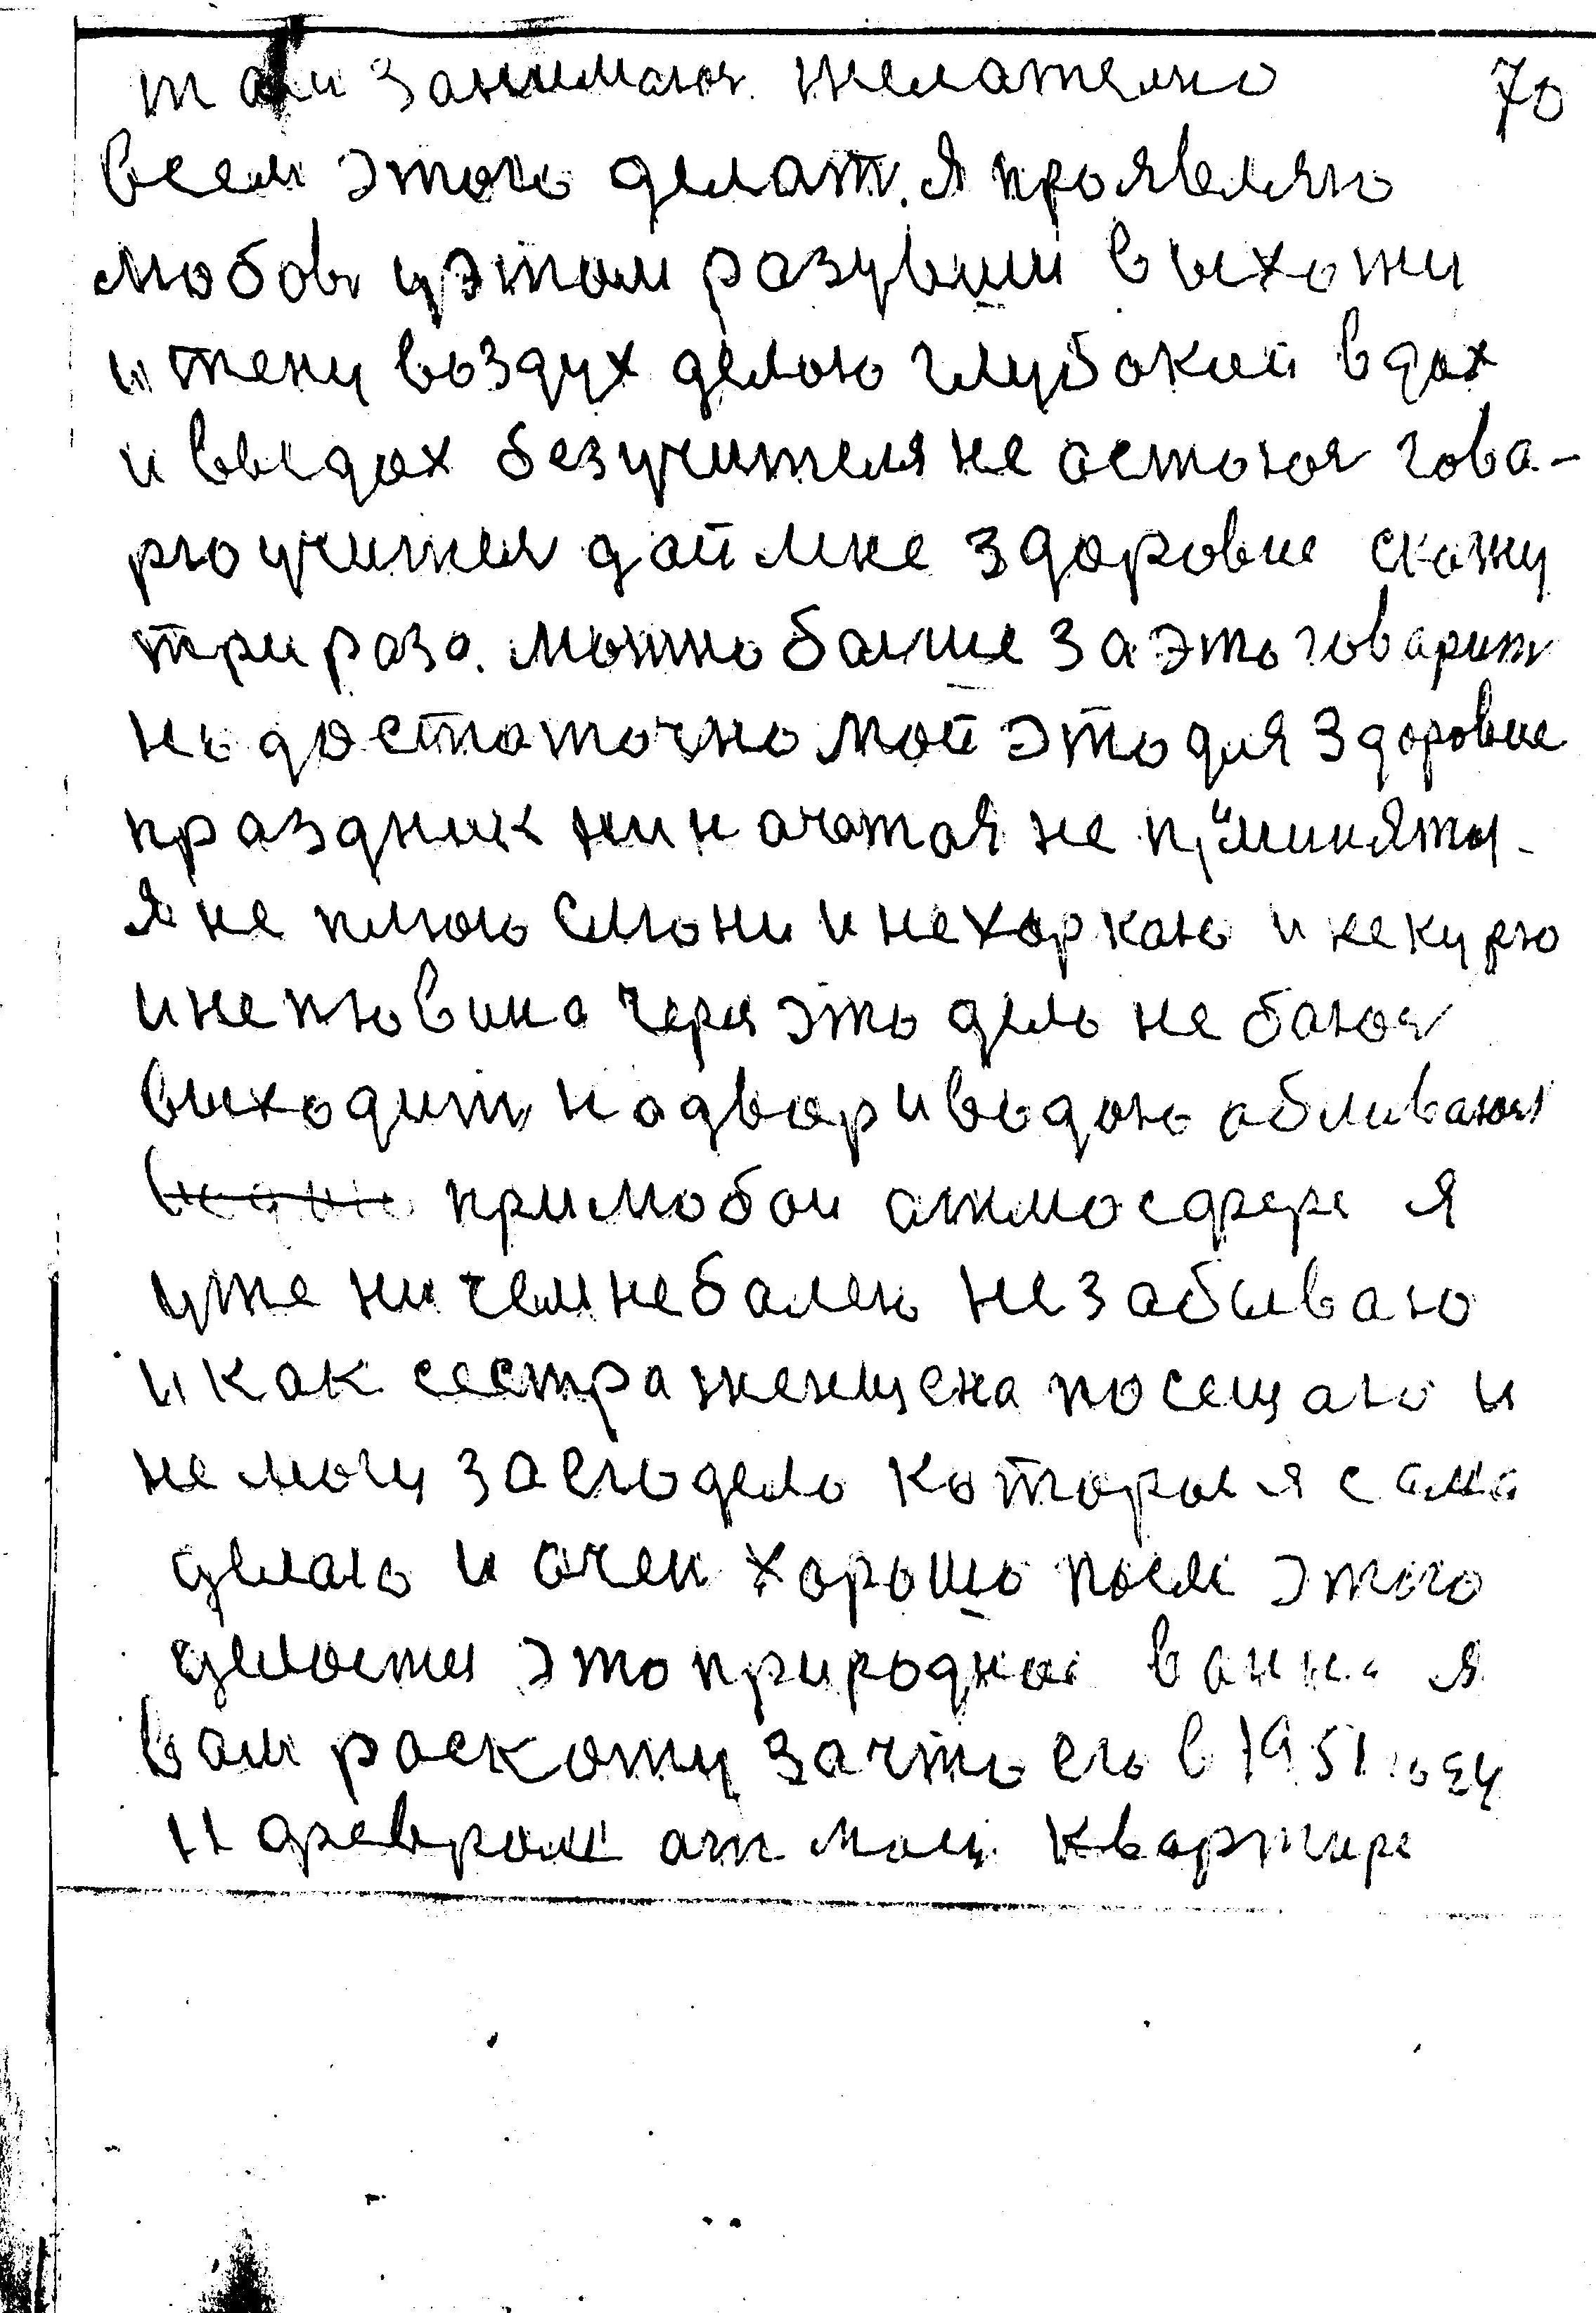 тали занимаюс. желателно 70
всем этого делат. я проявляю
любовь уэтом разувши выхожу
и тену воздух делаю глубокий вдах
и выедах безучителя не астаюся гова-
рю учител дай мне здаровие скажу
три раза. можно балше за это говарит
но достаточно мой это для здоровие
праздник ни на чтоя не приминяту.
Я не плюю слюни и не харкаю и не курю
и не пю вина через это дело не баюся
выходит на двор и водою абливаюся
при любои атмосфере я
уже ни чем не балею не забываю
и как сестра женщена посещаю и
не могу за его дело которое я сама
делаю и очен хорошо после этого
делается это природное ванна я
вам раскажу за что его в 1951 году
11 феврале ат моей квартире